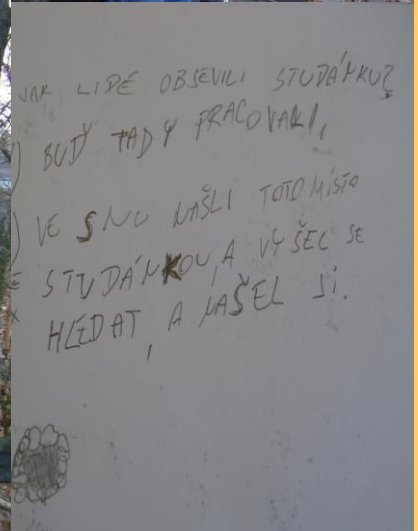 JAK LIDÉ OBJEVILI STUDÁNKU?
) BUĎ TADY PRACOVALI,
) VE SNU NAŠLI TOTO MÍSTO
SE STUDÁNKOU, A VYŠEL SE
HLEDAT, A NAŠEL JI.